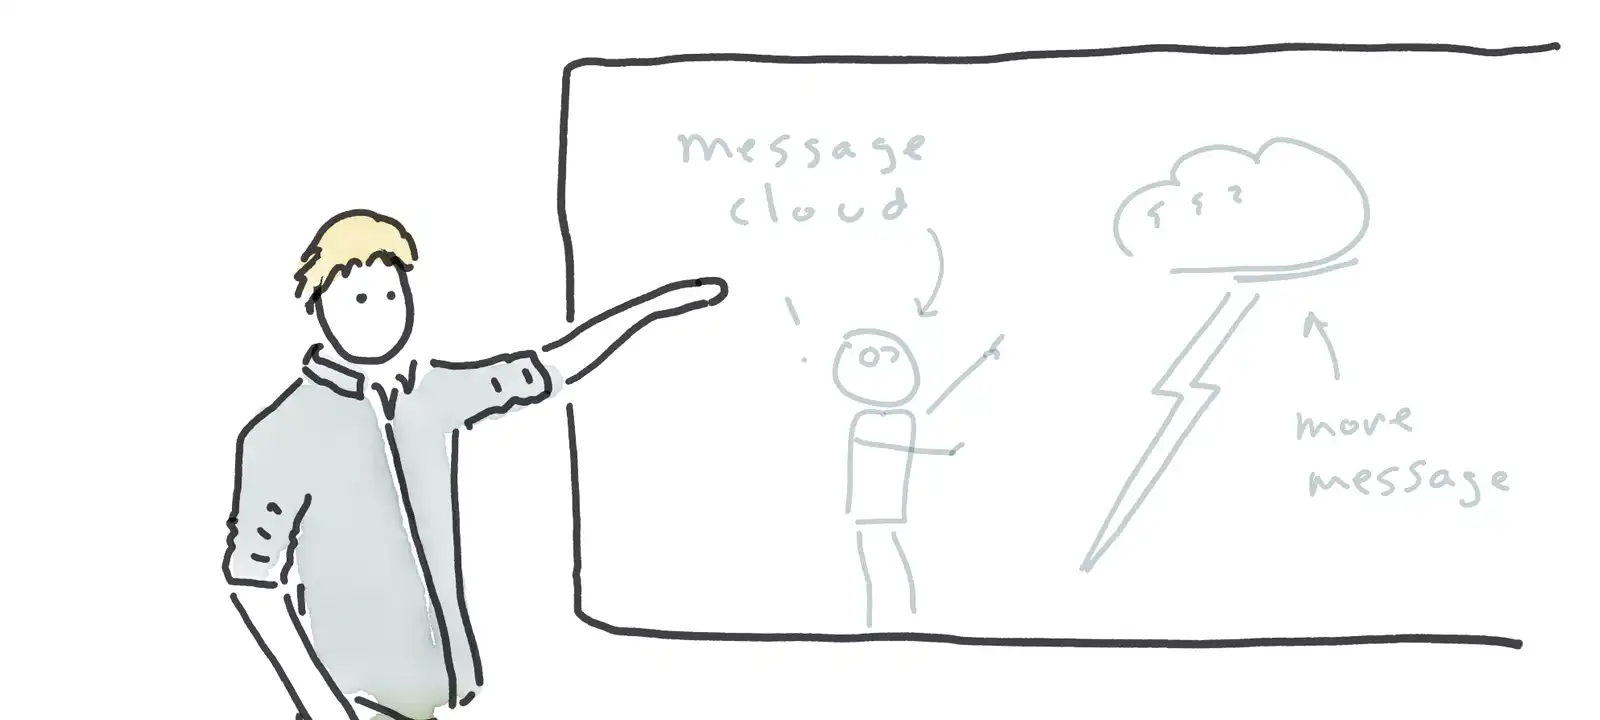 message
cloud
more
message